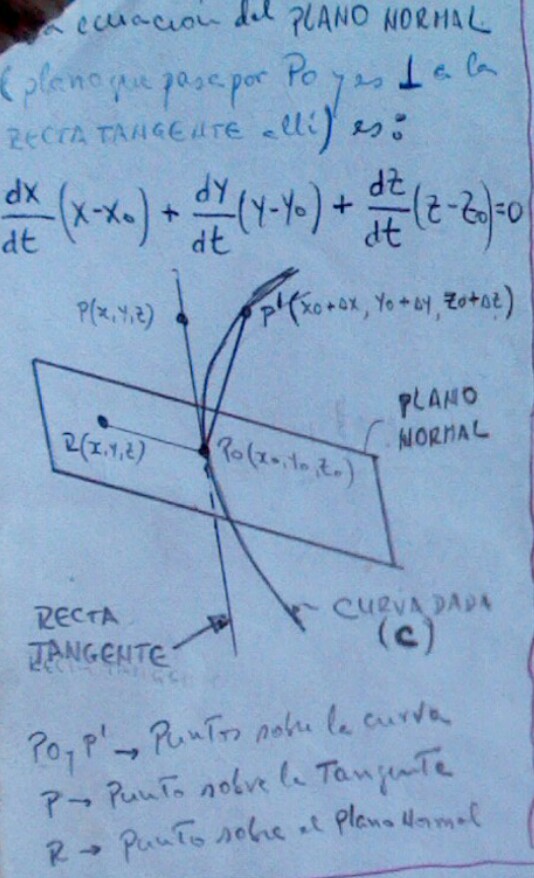 la ecuación del PLANO NORMAL
(plano que pasa por Po y es ⊥ a la
RECTA TANGENTE allí) es:
dx/dt (x-x₀) + dy/dt (y-y₀) + dz/dt (z-z₀)=0
P(x,y,z)
P'(x₀+Δx, y₀+Δy, z₀+Δz)
PLANO
NORMAL
R(x,y,z)
Po(x₀,y₀,z₀)
RECTA
TANGENTE
CURVA DADA
(C)
Po, P' → Puntos sobre la curva
P → Punto sobre la Tangente
R → Punto sobre el Plano Normal